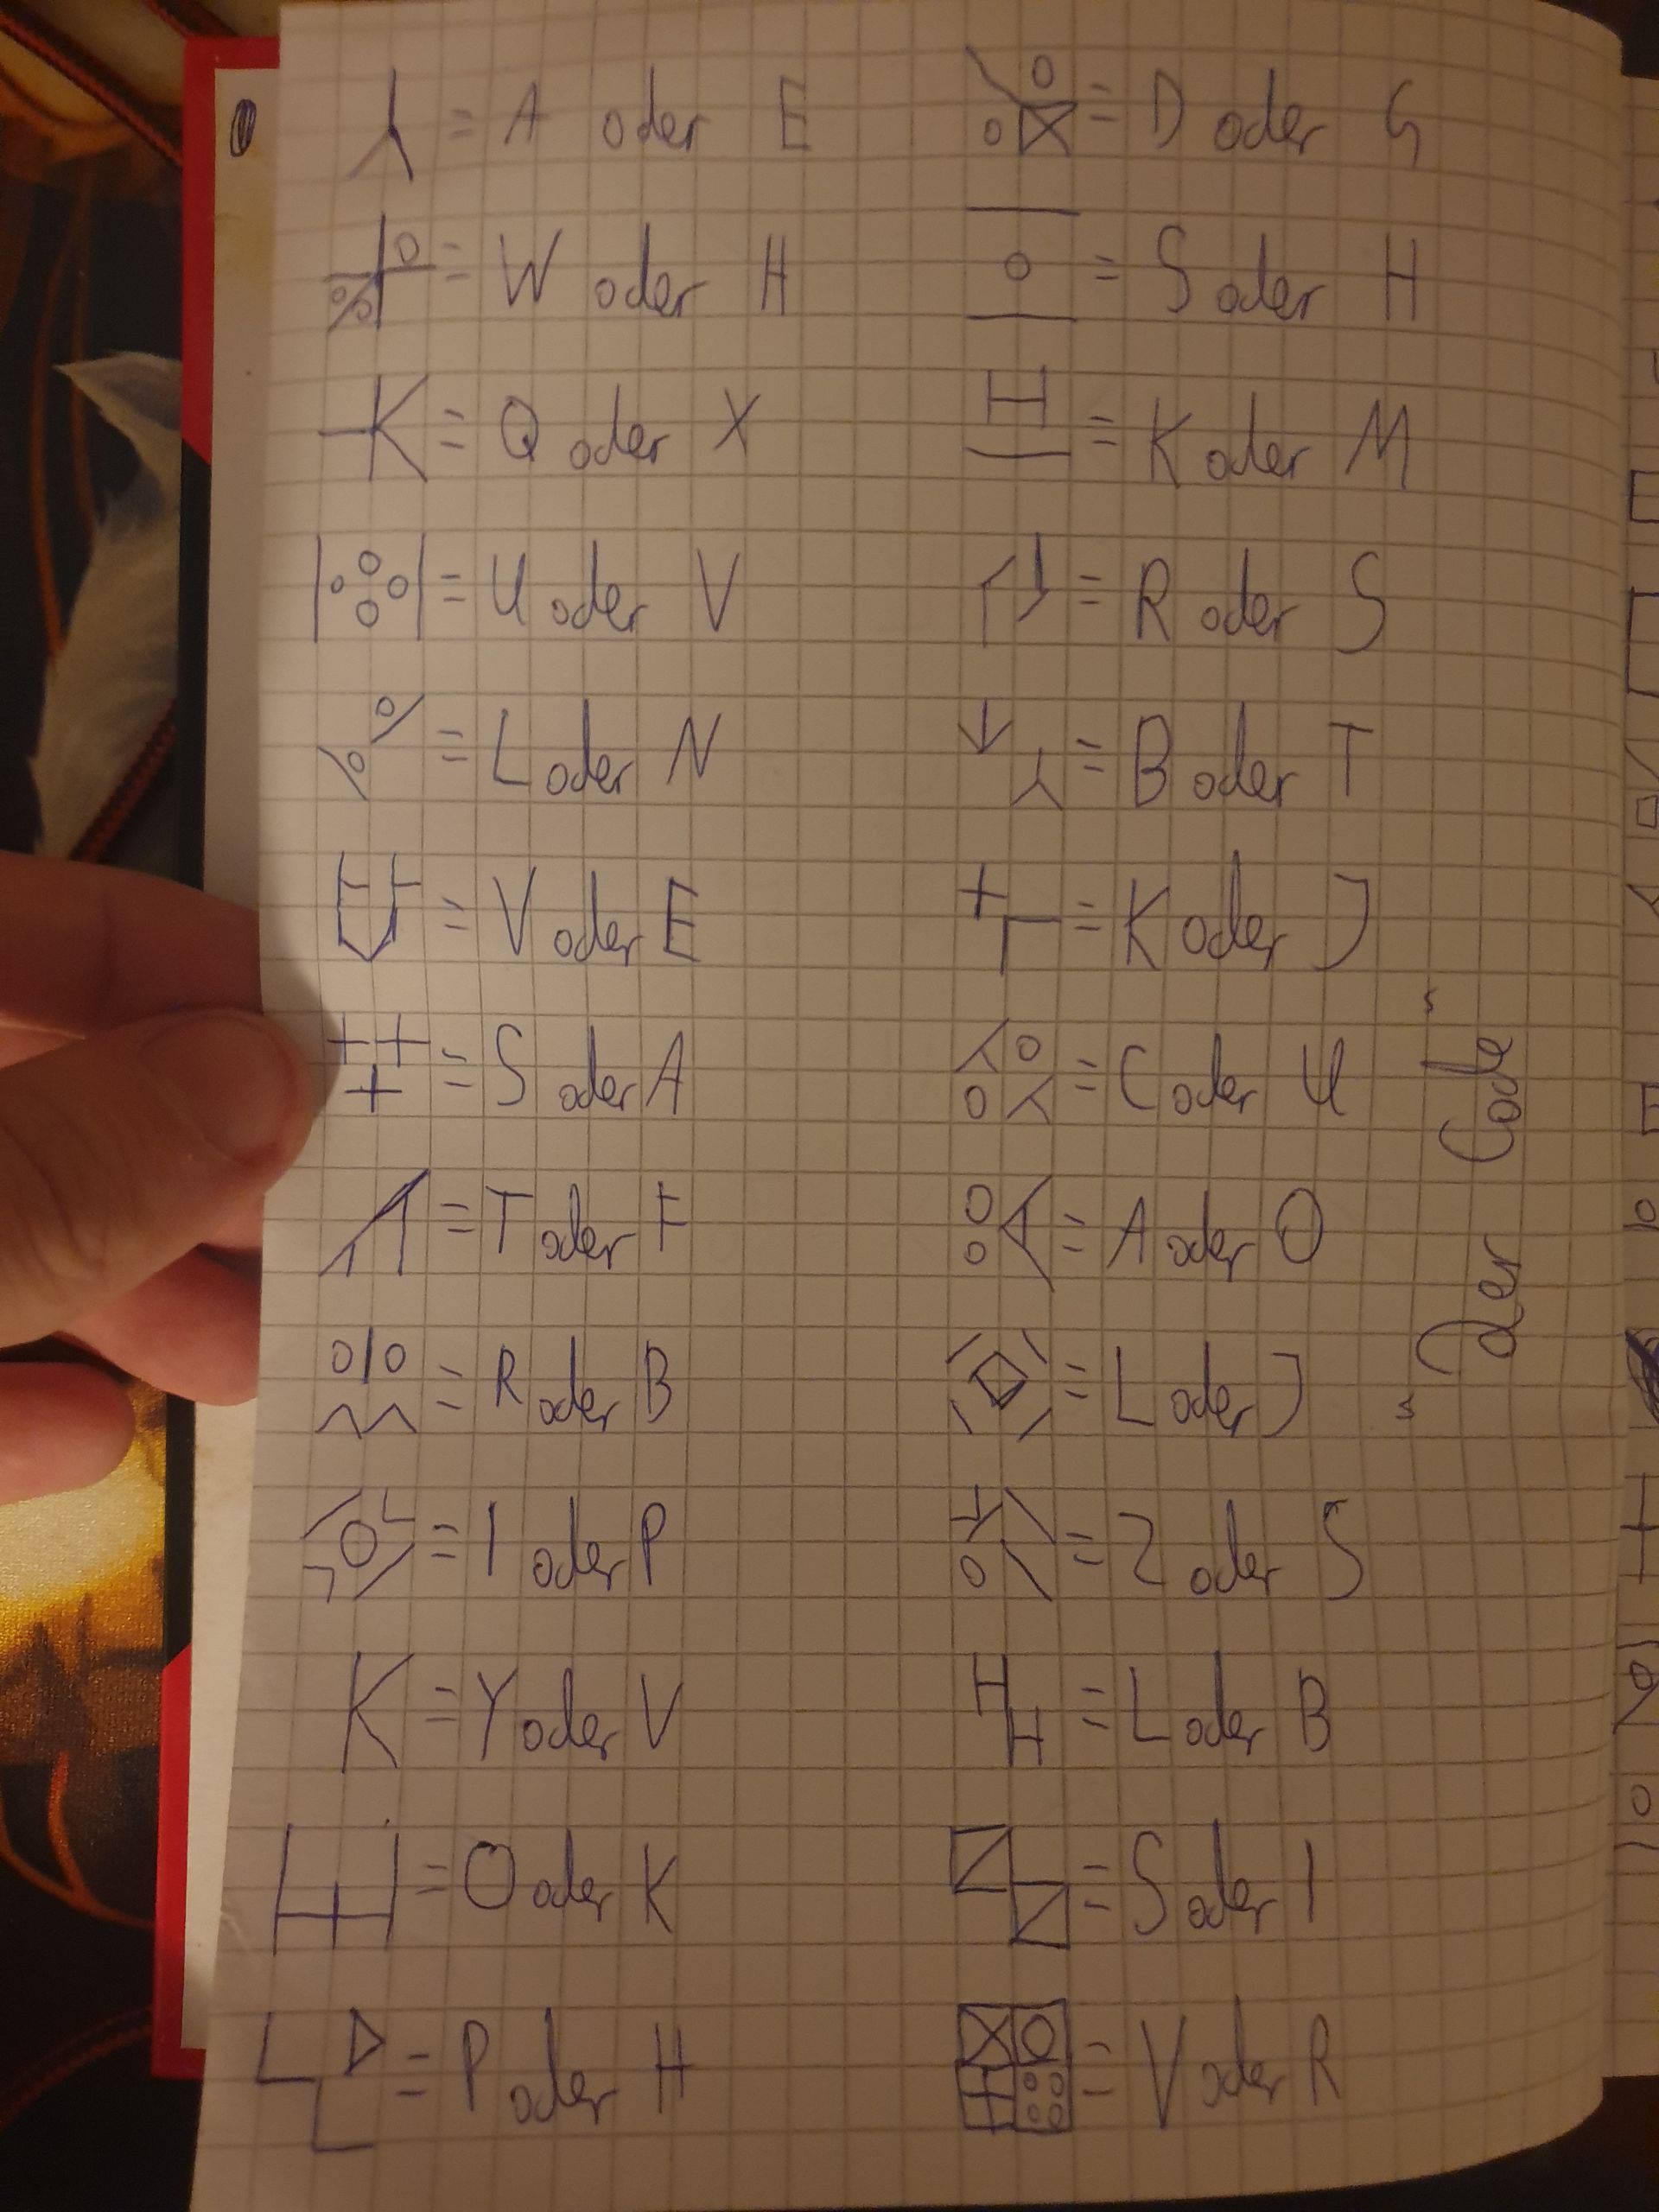 = A oder E = D oder G
= W oder H = S oder H
= Q oder X = K oder M
= U oder V = R oder S
= L oder N = B oder T
= V oder E = K oder J
= S oder A = C oder U
= T oder F = A oder O
= R oder B = L oder J
= I oder P = Z oder S
= Y oder V = L oder B
= O oder K = S oder I
= P oder H = V oder R
Der Code